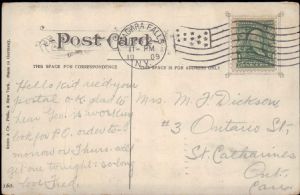 Post Card
THIS SPACE FOR CORRESPONDENCE
THIS SPACE IS FOR ADDRESS ONLY
NIAGARA FALLS
11-PM
1909
N.Y.
Hello Kid recd your
postal O.K. glad to
hear you is working
look for P.O. order to-
morrow or Thurs. will
get one tonight: so long
Fred.
Mrs. M. J. Dickson
#3 Ontario St,
St. Catharines
Ont.
Can